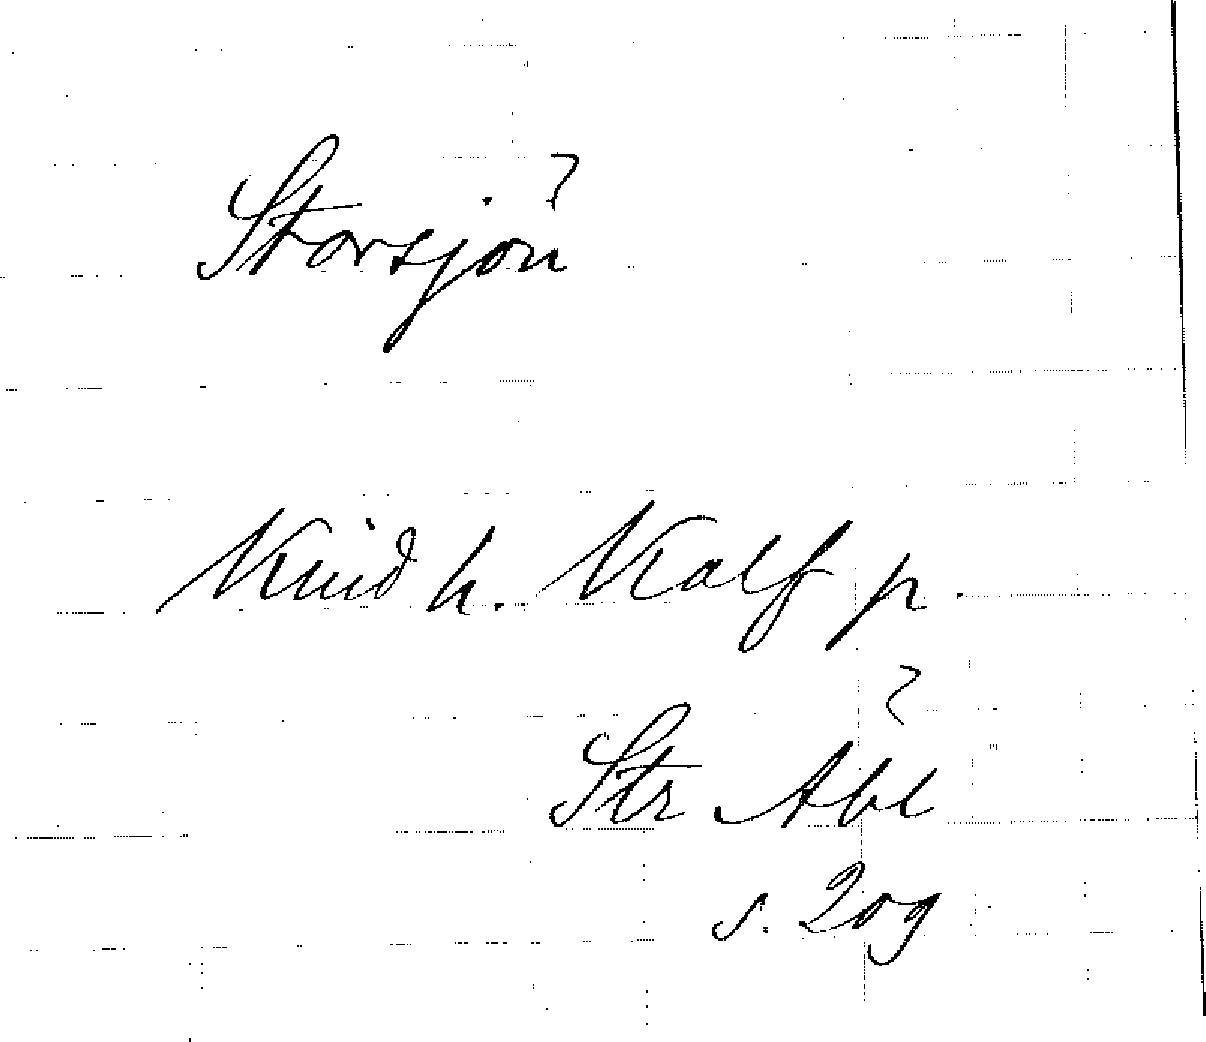 Storsjön
Knið h. Kalf p.
Str Åbl
s. 209